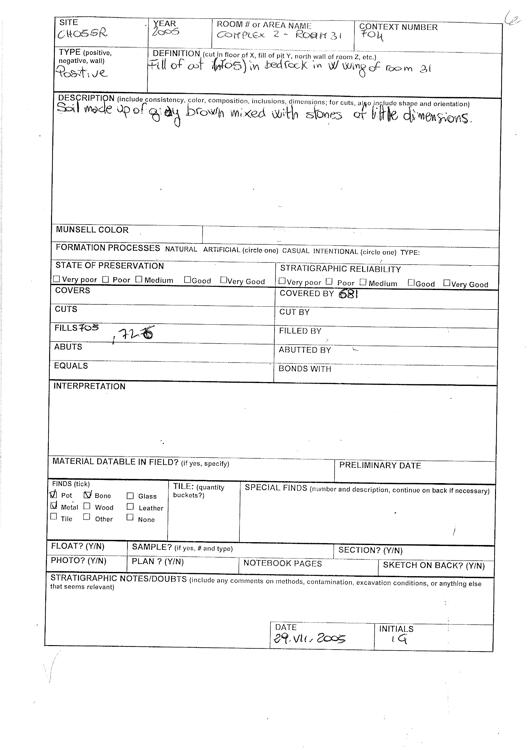 SITE YEAR ROOM # or AREA NAME CONTEXT NUMBER
CHOSSR 2005 COMPLEX 2 - ROOM 31 704
TYPE (positive, negative, wall) DEFINITION (cut in floor of X, fill of pit Y, north wall of room Z, etc.)
Positive Fill of cut (705) in bedrock in W wing of room 31
DESCRIPTION (include consistency, color, composition, inclusions, dimensions; for cuts, also include shape and orientation)
Soil made up of brown mixed with stones of little dimensions.
MUNSELL COLOR
FORMATION PROCESSES NATURAL ARTIFICIAL (circle one) CASUAL INTENTIONAL (circle one) TYPE:
STATE OF PRESERVATION STRATIGRAPHIC RELIABILITY
☐ Very poor ☐ Poor ☐ Medium ☐ Good ☐ Very Good ☐ Very poor ☐ Poor ☐ Medium ☐ Good ☐ Very Good
COVERS COVERED BY 681
CUTS CUT BY
FILLS 705, 726 FILLED BY
ABUTS ABUTTED BY
EQUALS BONDS WITH
INTERPRETATION
MATERIAL DATABLE IN FIELD? (if yes, specify) PRELIMINARY DATE
FINDS (tick) TILE: (quantity buckets?) SPECIAL FINDS (number and description, continue on back if necessary)
☑ Pot ☑ Bone ☐ Glass
☑ Metal ☐ Wood ☐ Leather
☐ Tile ☐ Other ☐ None
FLOAT? (Y/N) SAMPLE? (if yes, # and type) SECTION? (Y/N)
PHOTO? (Y/N) PLAN ? (Y/N) NOTEBOOK PAGES SKETCH ON BACK? (Y/N)
STRATIGRAPHIC NOTES/DOUBTS (include any comments on methods, contamination, excavation conditions, or anything else
that seems relevant)
DATE INITIALS
29.VII.2005 IG